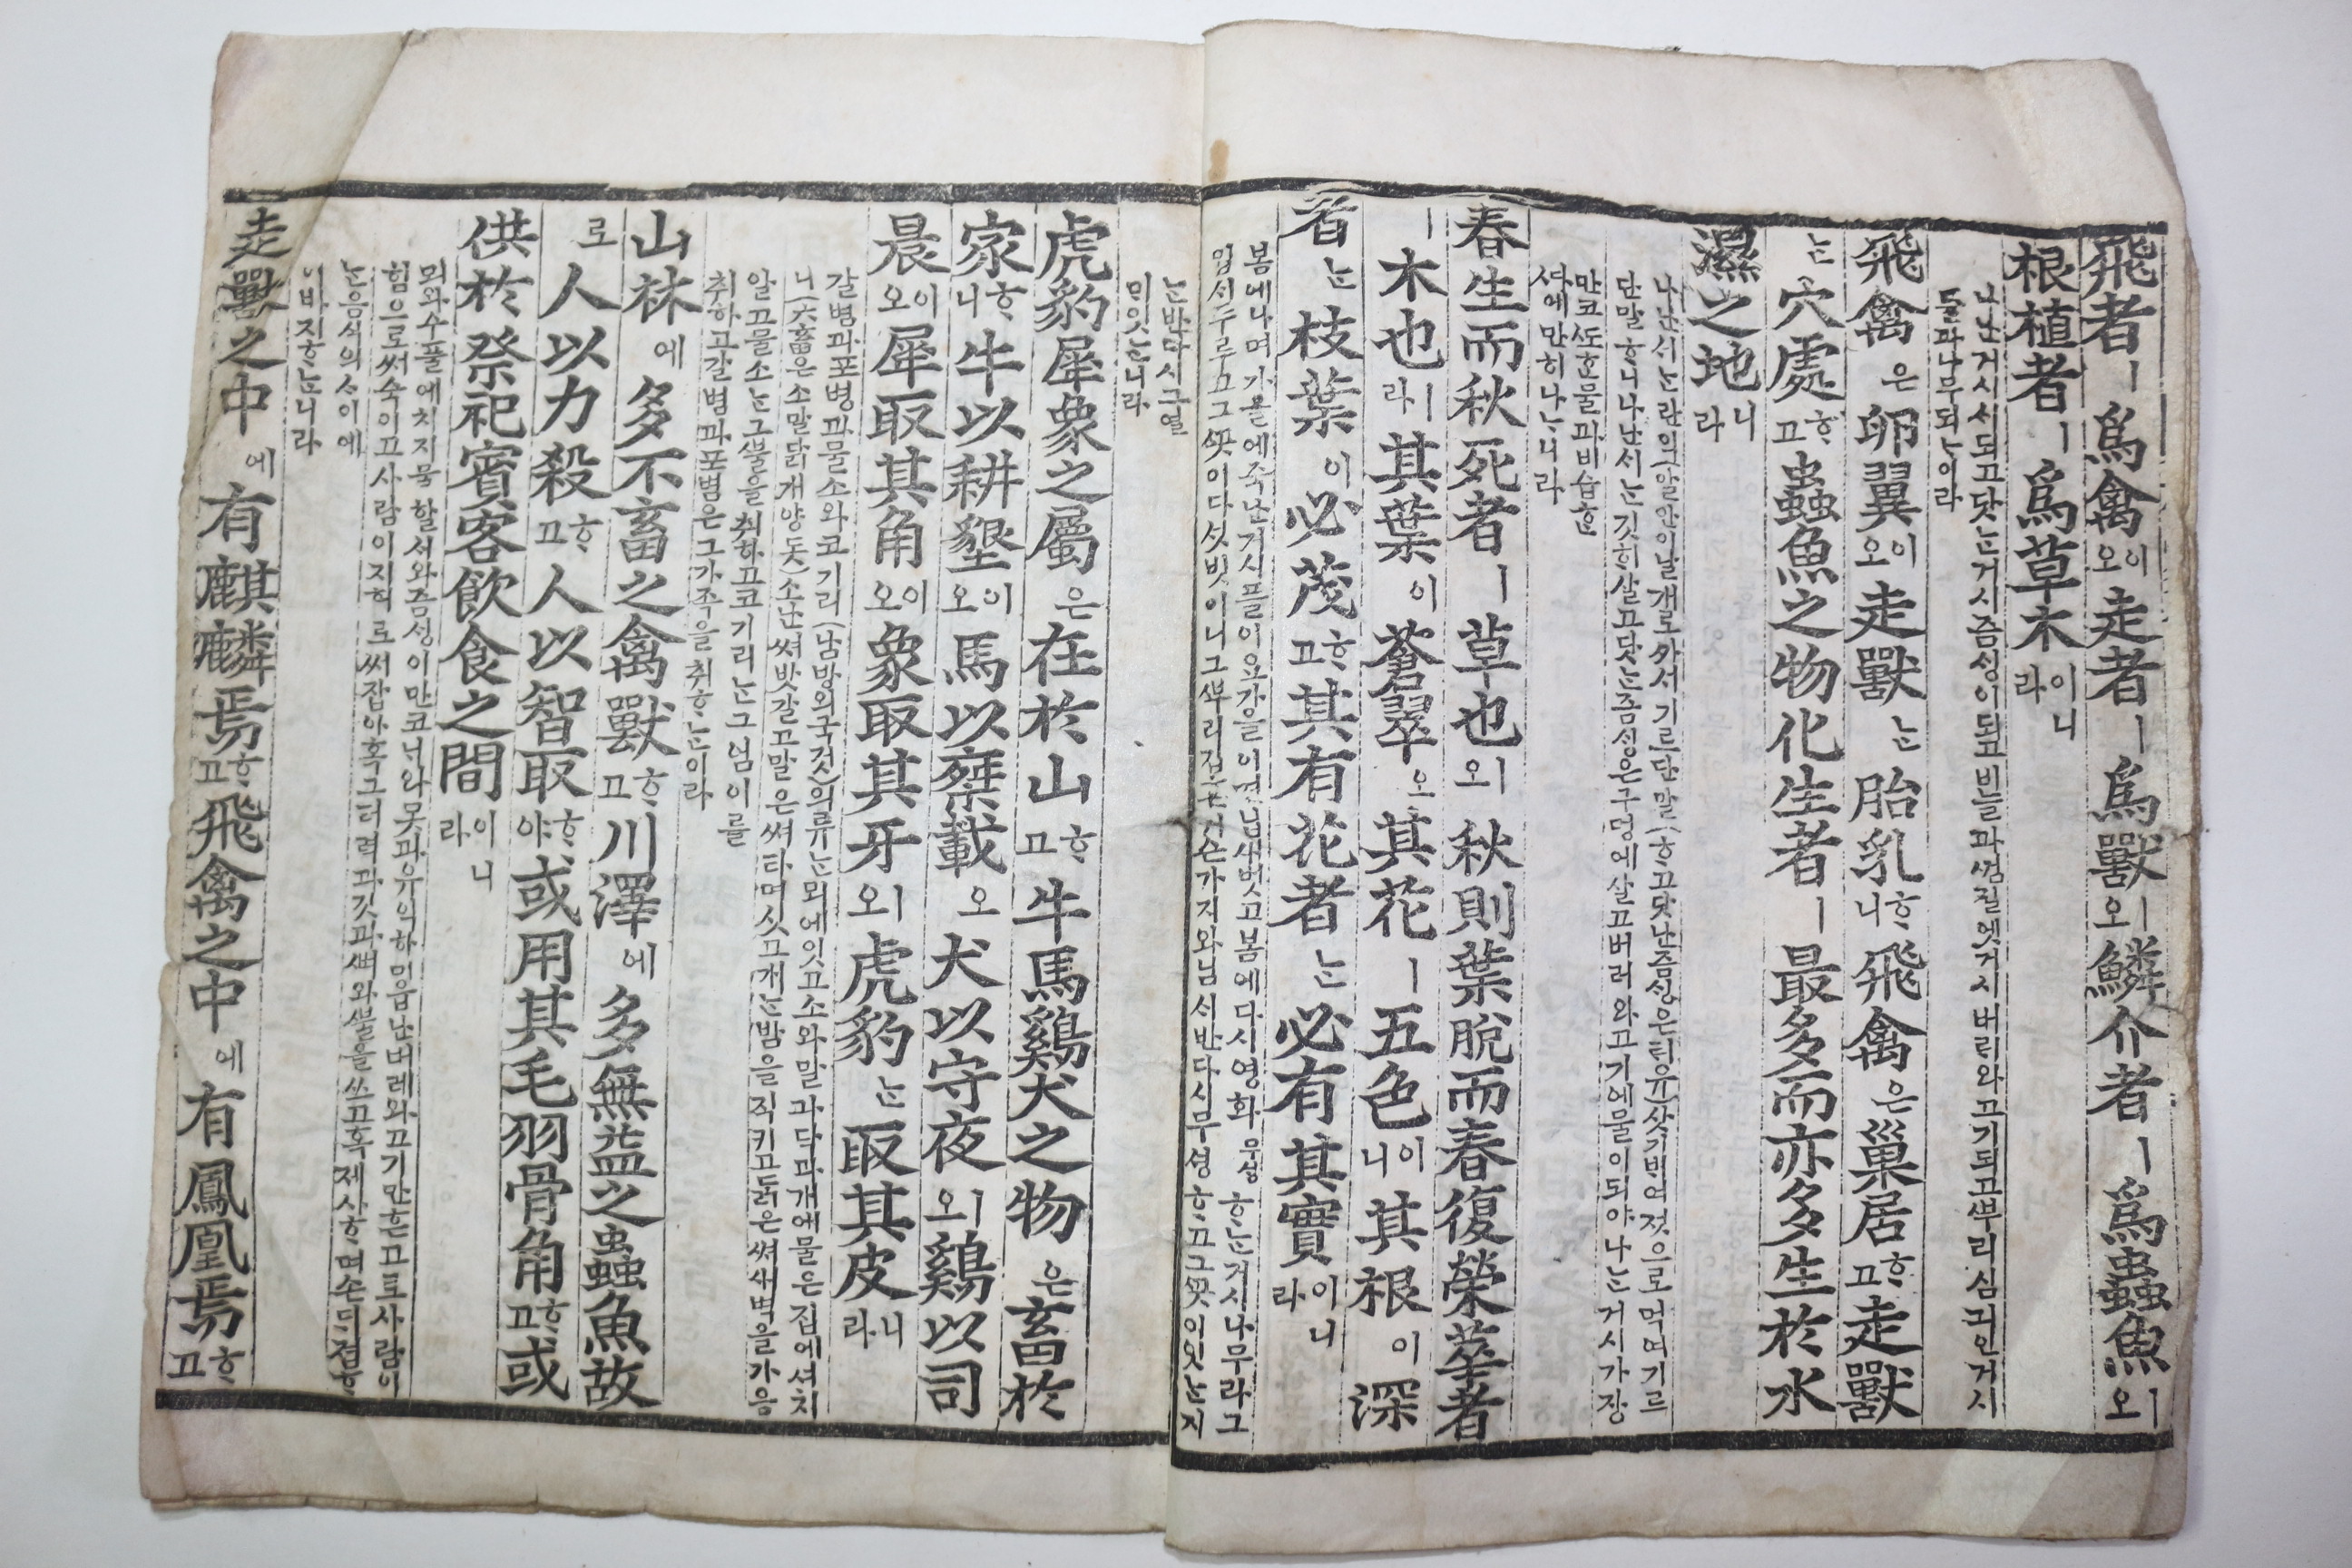 飛者ㅣ爲禽이오走者ㅣ爲獸ㅣ오鱗介者ㅣ爲蟲魚ㅣ오
根植者ㅣ爲草木이니라
나난거시ᄉᆡ되고닷ᄂᆞᆫ거시즘ᄉᆡᆼ이되고비늘과ᄭᅥᆸ질엣거시버러와고기되고ᄲᅮ리심긔인거시
플과나무되ᄂᆞ이라
飛禽은卵翼이오走獸ᄂᆞᆫ胎乳ᄒᆞ니飛禽은巢居ᄒᆞ고走獸
ᄂᆞᆫ穴處ᄒᆞ고蟲魚之物化生者ㅣ最多而亦多生於水
濕之地니라
나난ᄉᆡᄂᆞᆫ란의(알안의)날개로ᄭᅡ셔기르단말)ᄒᆞ고닷난즘ᄉᆡᆼ은ᄐᆡ유(삿기ᄇᆡ여젓으로먹여기르
단말)ᄒᆞ니나난ᄉᆡᄂᆞᆫ깃ᄒᆡ살고닷ᄂᆞᆫ즘ᄉᆡᆼ은구멍에살고버러와고기에물이되야나ᄂᆞᆫ거시가장
만코ᄯᅩᄒᆞᆫ물과비습ᄒᆞᆫ
ᄯᅡ에만히나ᄂᆞ니라
春生而秋死者ㅣ草也ㅣ오秋則葉脫而春復榮華者
ㅣ木也ㅣ라其葉이蒼翠오其花ㅣ五色이니其根이深
者ᄂᆞᆫ枝葉이必茂ᄒᆞ고其有花者ᄂᆞᆫ必有其實이니라
봄에나며가을에죽난거시플이요가을이면닙새벗고봄에다시영화무셩ᄒᆞᆫ거시나무라그
입ᄉᆡ푸루고그ᄭᅩᆺ이다섯빗이니그ᄲᅮ리깁흔거슨가지와닙ᄉᆡ반다시무셩ᄒᆞ고그ᄭᅩᆺ이잇난지
ᄂᆞᆫ반다시그열
ᄆᆡ잇ᄂᆞ니라
虎豹犀象之屬은在於山ᄒᆞ고牛馬鷄犬之物은畜於
家ᄒᆞ니牛以耕墾이오馬以乘載오犬以守夜ㅣ오鷄以司
晨이오犀取其角이오象取其牙ㅣ오虎豹ᄂᆞᆫ取其皮니라
갈범과포범과물소와코기리(남방외국것)의류ᄂᆞᆫ뫼에잇고소와말과닥과개에물은집에셔치
니(六畜은소말닭개양돗)소난ᄡᅥ밧갈고말은ᄡᅥ타며싯고개ᄂᆞᆫ밤을직키고ᄃᆞᆰ은ᄡᅥ새벽을가음
알고물소ᄂᆞᆫ그ᄲᅮᆯ을취하고코기리ᄂᆞᆫ그엄이를
취하고갈범과포범은그가죽을취ᄒᆞᄂᆞᆫ이라
山林에多不畜之禽獸ᄒᆞ고川澤에多無益之蟲魚故
로人以力殺ᄒᆞ고人以智取ᄒᆞ야或用其毛羽骨角ᄒᆞ고或
供於祭祀賓客飮食之間이니라
뫼와수플에치지못할ᄉᆡ와즘ᄉᆡᆼ이만코ᄂᆡ와못과유익하미읍난버레와고기만흔고로사람이
힘으로써죽이고사람이지혜로써잡아혹그터럭과깃과ᄲᅧ와ᄲᅮᆯ을쓰고혹제사ᄒᆞ며손ᄃᆡ접ᄒᆞ
ᄂᆞᆫ음식의ᄉᆞ이에
이바지ᄒᆞᄂᆞ니라
走獸之中에有麒麟焉ᄒᆞ고飛禽之中에有鳳凰焉ᄒᆞ고